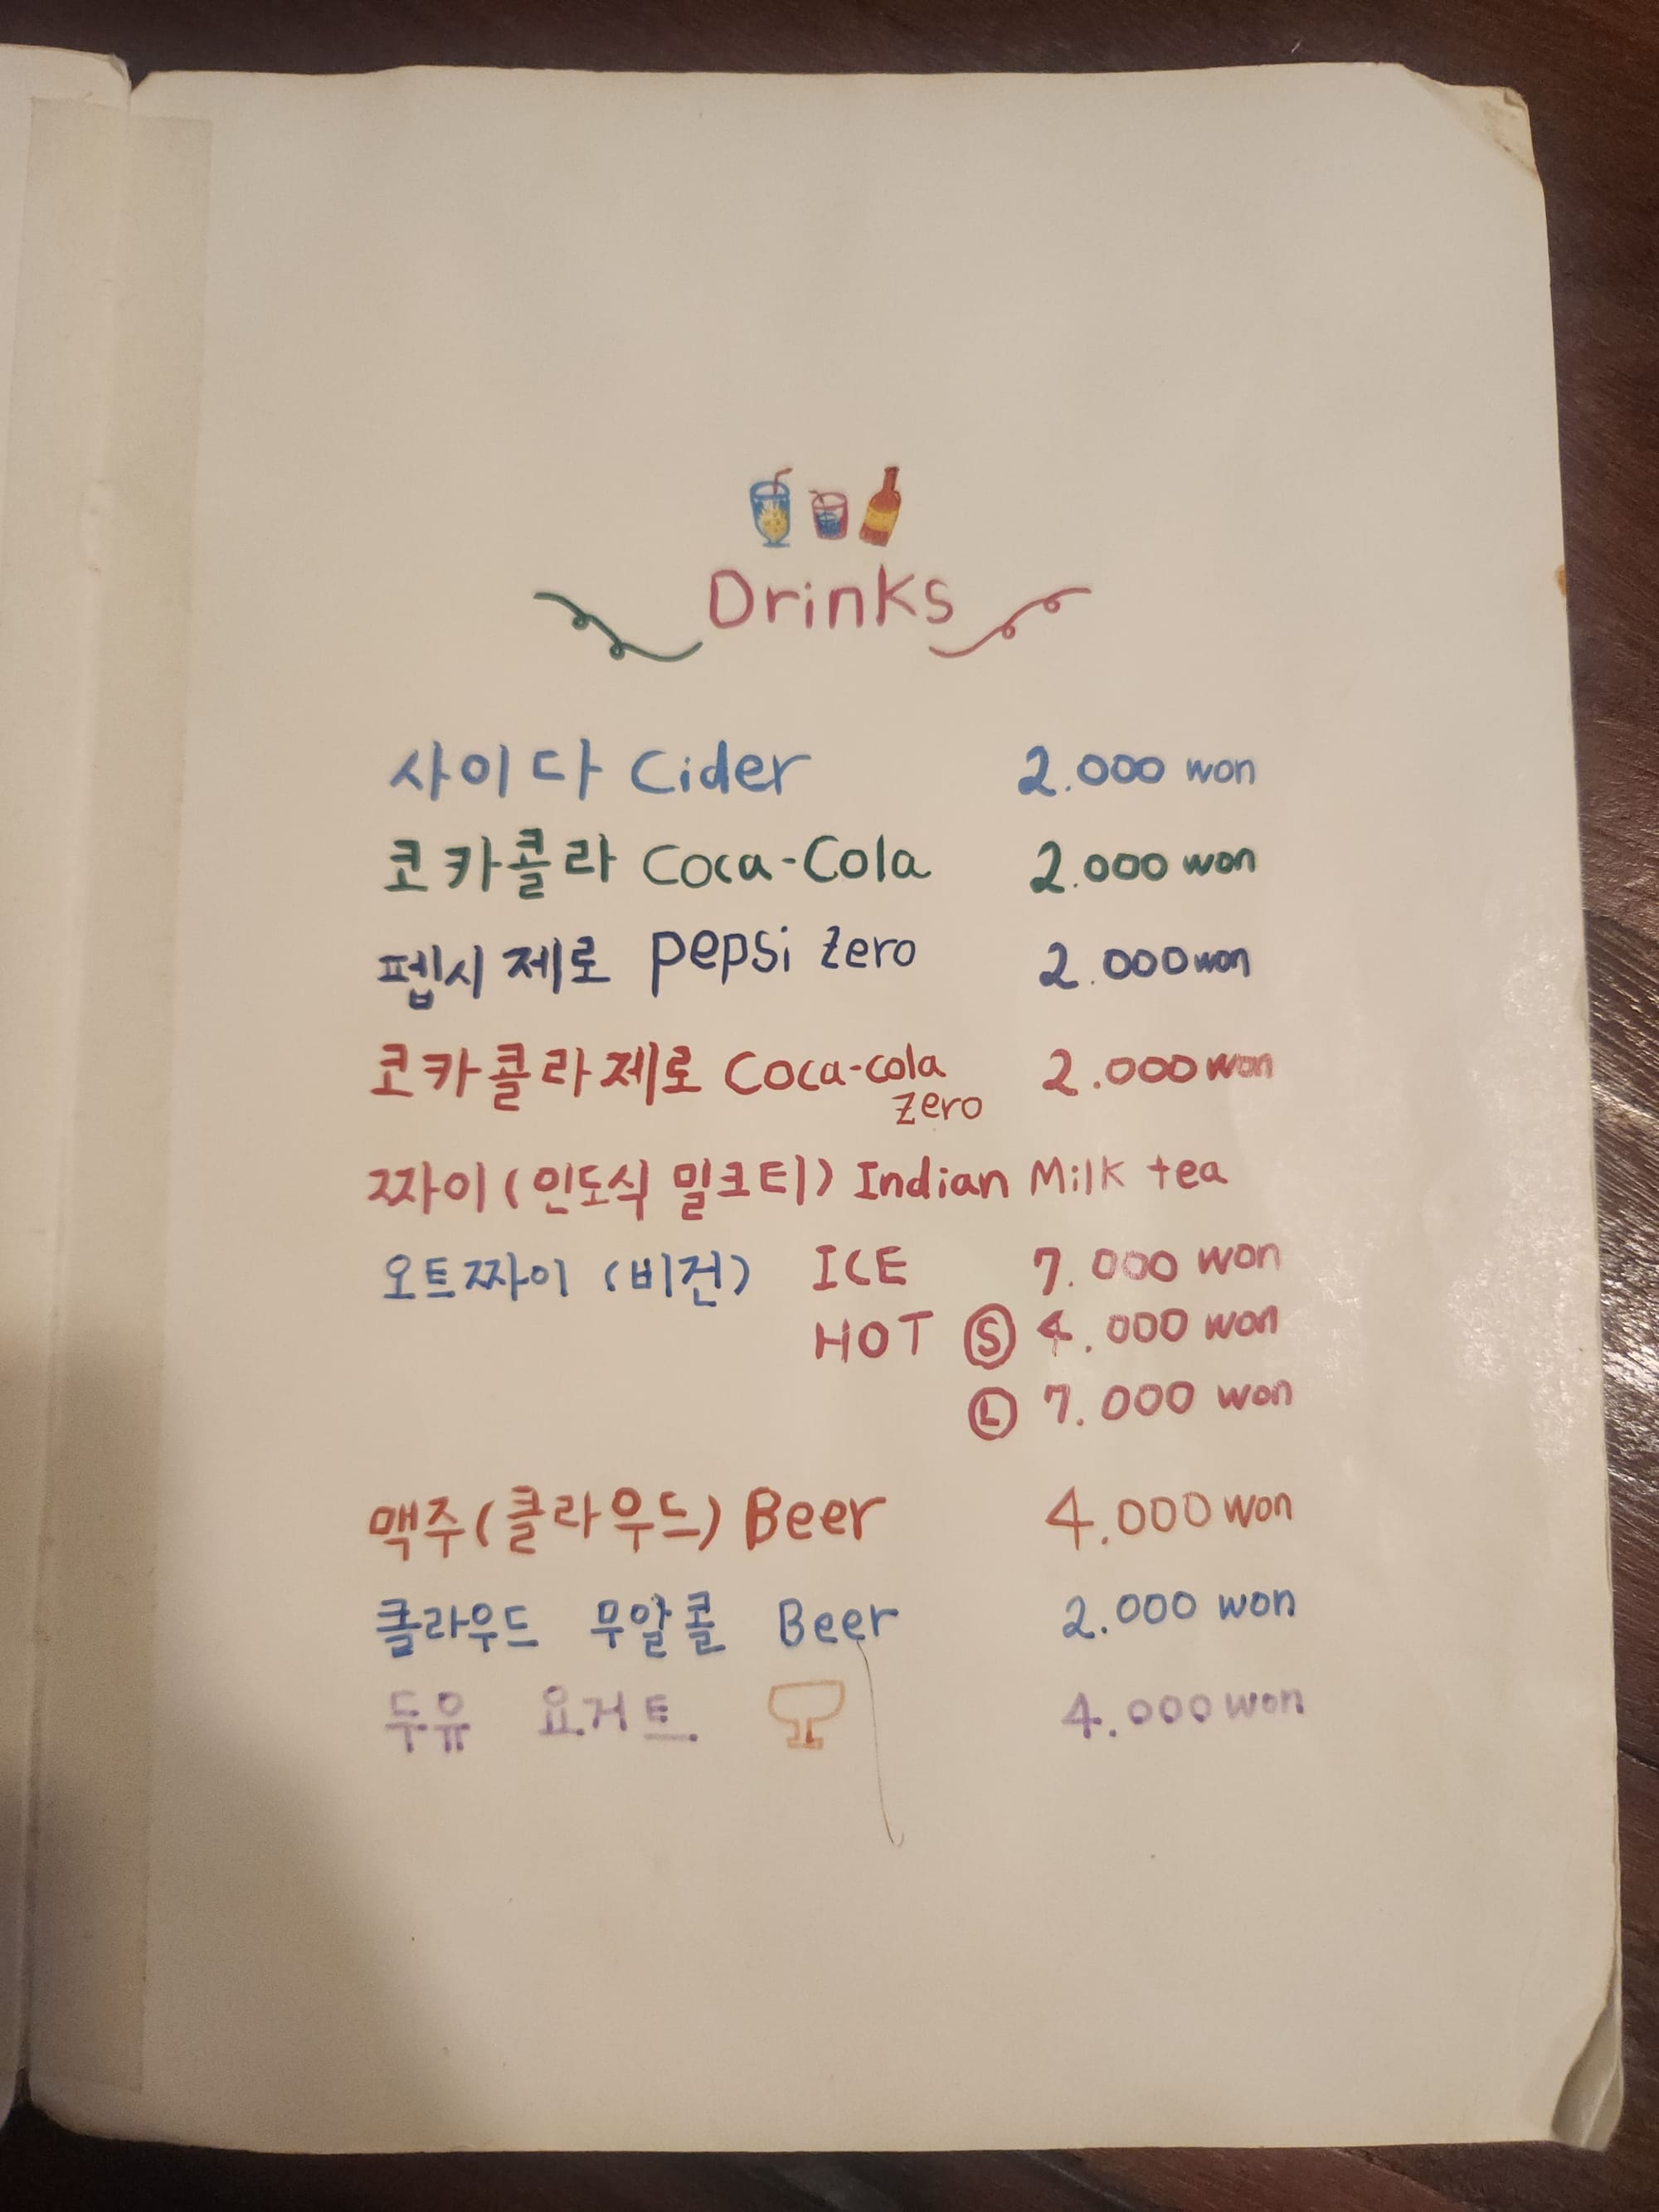 Drinks
사이다 Cider 2.000 won
코카콜라 Coca-Cola 2.000 won
펩시 제로 pepsi zero 2.000 won
코카콜라제로 Coca-cola zero 2.000 won
짜이(인도식 밀크티) Indian Milk tea
오트짜이 (비건) ICE 7.000 won
HOT Ⓢ 4.000 won
Ⓛ 7.000 won
맥주(클라우드) Beer 4.000 won
클라우드 무알콜 Beer 2.000 won
두유 요거트 4.000 won